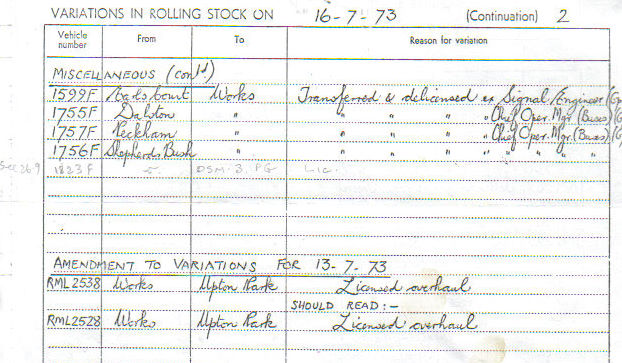 VARIATIONS IN ROLLING STOCK ON 16-7-73 (Continuation) 2
Vehicle number From To Reason for variation
MISCELLANEOUS (cont'd)
1599F Earls Court Works Transferred & delicensed ex Signal Engineer
1755F Dalston " " " " Chief Oper. Mgr. (Buses)
1757F Peckham " " " " Chief Oper. Mgr. (Buses)
1756F Shepherds Bush " " " " " " " "
1823F DSM. 3. PG Lic.
AMENDMENT TO VARIATIONS FOR 13-7-73
RML2538 Works Upton Park Licensed overhaul
SHOULD READ :-
RML2528 Works Upton Park Licensed overhaul